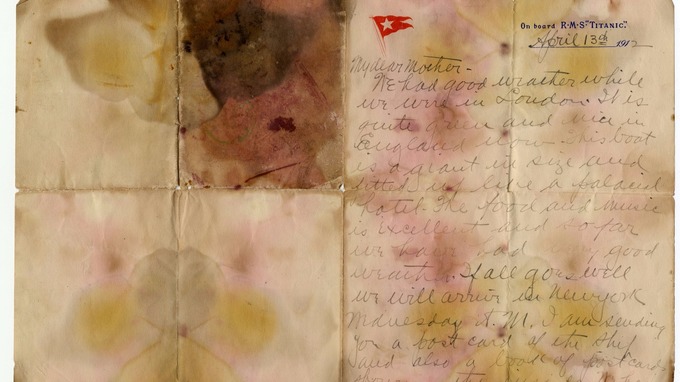 On board R·M·S·"TITANIC."
April 13th 1912
My dear Mother-
We had good weather while
we were in London. It is
quite green and nice in
England now. This boat
is a giant in size and
fitted up like a palacial
hotel. The food and music
is excellent and so far
we have had very good
weather. If all goes well
we will arrive in New York
Wednesday A.M. I am sending
you a post card of the ship
and also a book of postcards